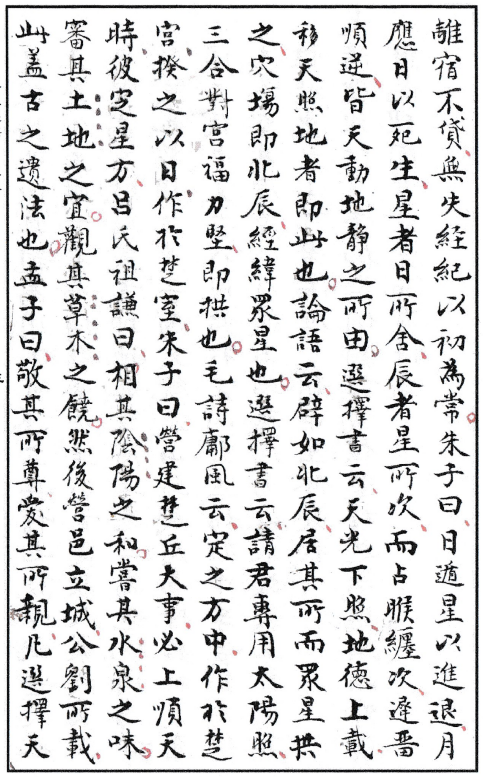 離宿不貸無失経紀以初為常朱子曰日遁星以進退月
應日以死生星者日所舍辰者星所次而占睺纏次遲畱
順逆皆天動地静之所由選擇書云天光下照地德上載
移天照地者即此也論語云辟如北辰居其所而眾星拱
之穴塲即北辰經緯眾星也選擇書云請君專用太陽照
三合對宮福力堅即拱也毛詩鄘風云定之方中作於楚
宮揆之以日作於楚室朱子曰營建楚丘大事必上順天
時彼定星方吕氏祖謙曰相其陰陽之和嘗其水泉之味
審其土地之宜觀其草木之饒然後營邑立城公劉所載
此盖古之遺法也孟子曰敬其所尊愛其所親凡選擇天